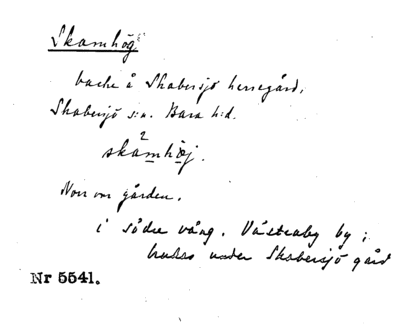 Skamhög
backe å Skabersjö herregård,
Skabersjö s:n. Bara h:d.
2
skamhöj.
Norr om gården.
i södra vång. Västraby by i
under Skabersjö gård
Nr 5541.